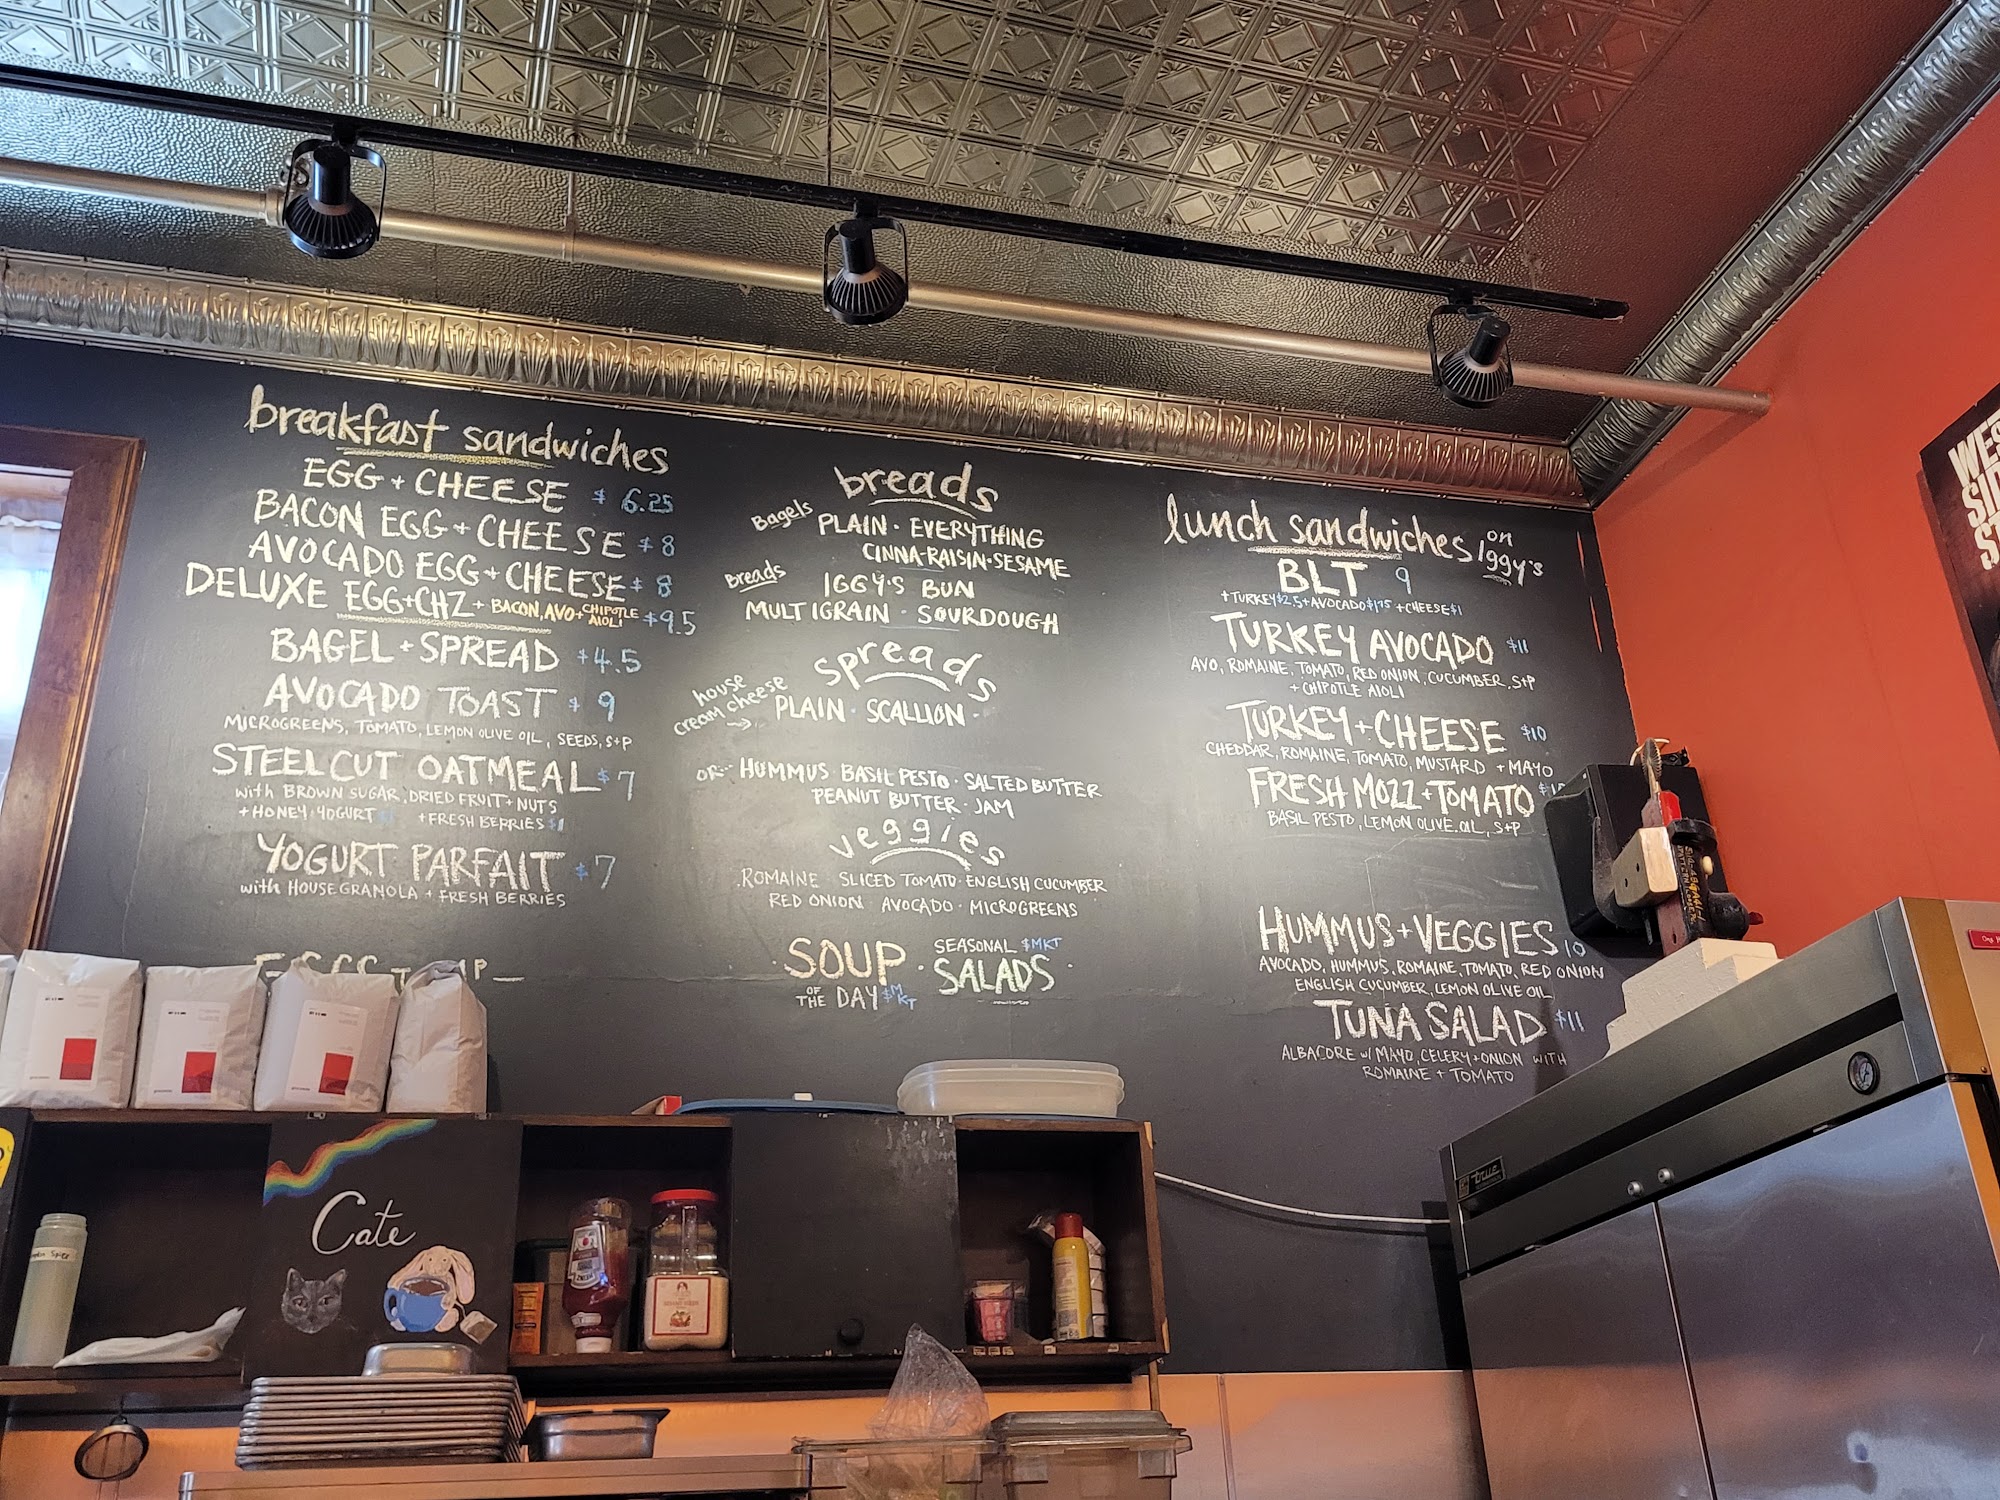 breakfast sandwiches
EGG + CHEESE $6.25
BACON EGG + CHEESE $8
AVOCADO EGG + CHEESE $8
DELUXE EGG+CHZ + BACON, AVO + CHIPOTLE AIOLI $9.5
BAGEL + SPREAD $4.5
AVOCADO TOAST $9
MICROGREENS, TOMATO, LEMON OLIVE OIL, SEEDS, S+P
STEEL CUT OATMEAL $7
with BROWN SUGAR, DRIED FRUIT + NUTS
+ HONEY YOGURT + FRESH BERRIES $1
YOGURT PARFAIT $7
with HOUSE GRANOLA + FRESH BERRIES
breads
Bagels
PLAIN · EVERYTHING
CINNA-RAISIN · SESAME
Breads
IGGY'S BUN
MULTIGRAIN · SOURDOUGH
spreads
house
cream cheese
PLAIN · SCALLION ·
OR·· HUMMUS · BASIL PESTO · SALTED BUTTER
PEANUT BUTTER · JAM
veggies
ROMAINE · SLICED TOMATO · ENGLISH CUCUMBER
RED ONION · AVOCADO · MICROGREENS
· SOUP ·
OF THE DAY $MKT
SEASONAL $MKT
SALADS ·
lunch sandwiches on Iggy's
BLT 9
+ TURKEY $2.5 + AVOCADO $1.75 + CHEESE $1
TURKEY AVOCADO $11
AVO, ROMAINE, TOMATO, RED ONION, CUCUMBER, S+P
+ CHIPOTLE AIOLI
TURKEY + CHEESE $10
CHEDDAR, ROMAINE, TOMATO, MUSTARD + MAYO
FRESH MOZZ + TOMATO
BASIL PESTO, LEMON OLIVE OIL, S+P
HUMMUS + VEGGIES 10
AVOCADO, HUMMUS, ROMAINE, TOMATO, RED ONION
ENGLISH CUCUMBER, LEMON OLIVE OIL
TUNA SALAD $11
ALBACORE w/ MAYO, CELERY + ONION WITH
ROMAINE + TOMATO
Cate
true
HEINZ